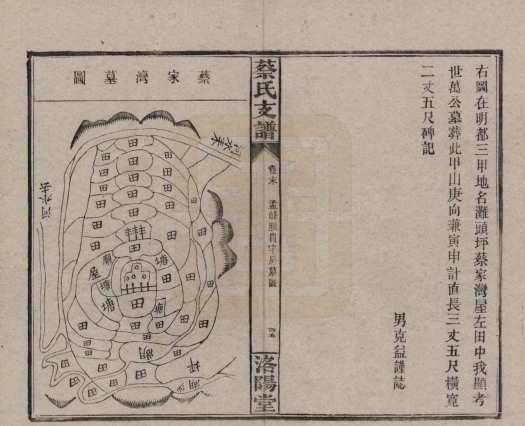 右圖在明都三甲地名灘頭坪蔡家灣屋左田中我顯考
世萬公墓葬此甲山庚向兼寅申計直長三丈五尺橫寬
二丈五尺碑記
男克益謹誌
蔡氏支譜
卷末
洛陽堂
蔡家灣墓圖
河水來
河水去
田
田
田
田
田
屋
湖
坪